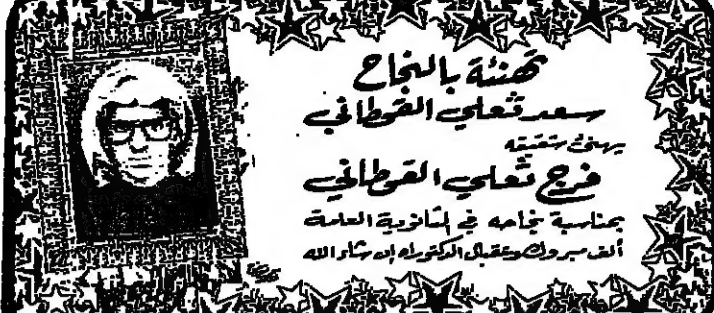 تهنئة بالنجاح
سعد ثعلي القحطاني
يهنئ شقيقه
فرج ثعلي القحطاني
بمناسبة نجاحه في الثانوية العامة
ألف مبروك وعقبال الدكتوراه إن شاء الله